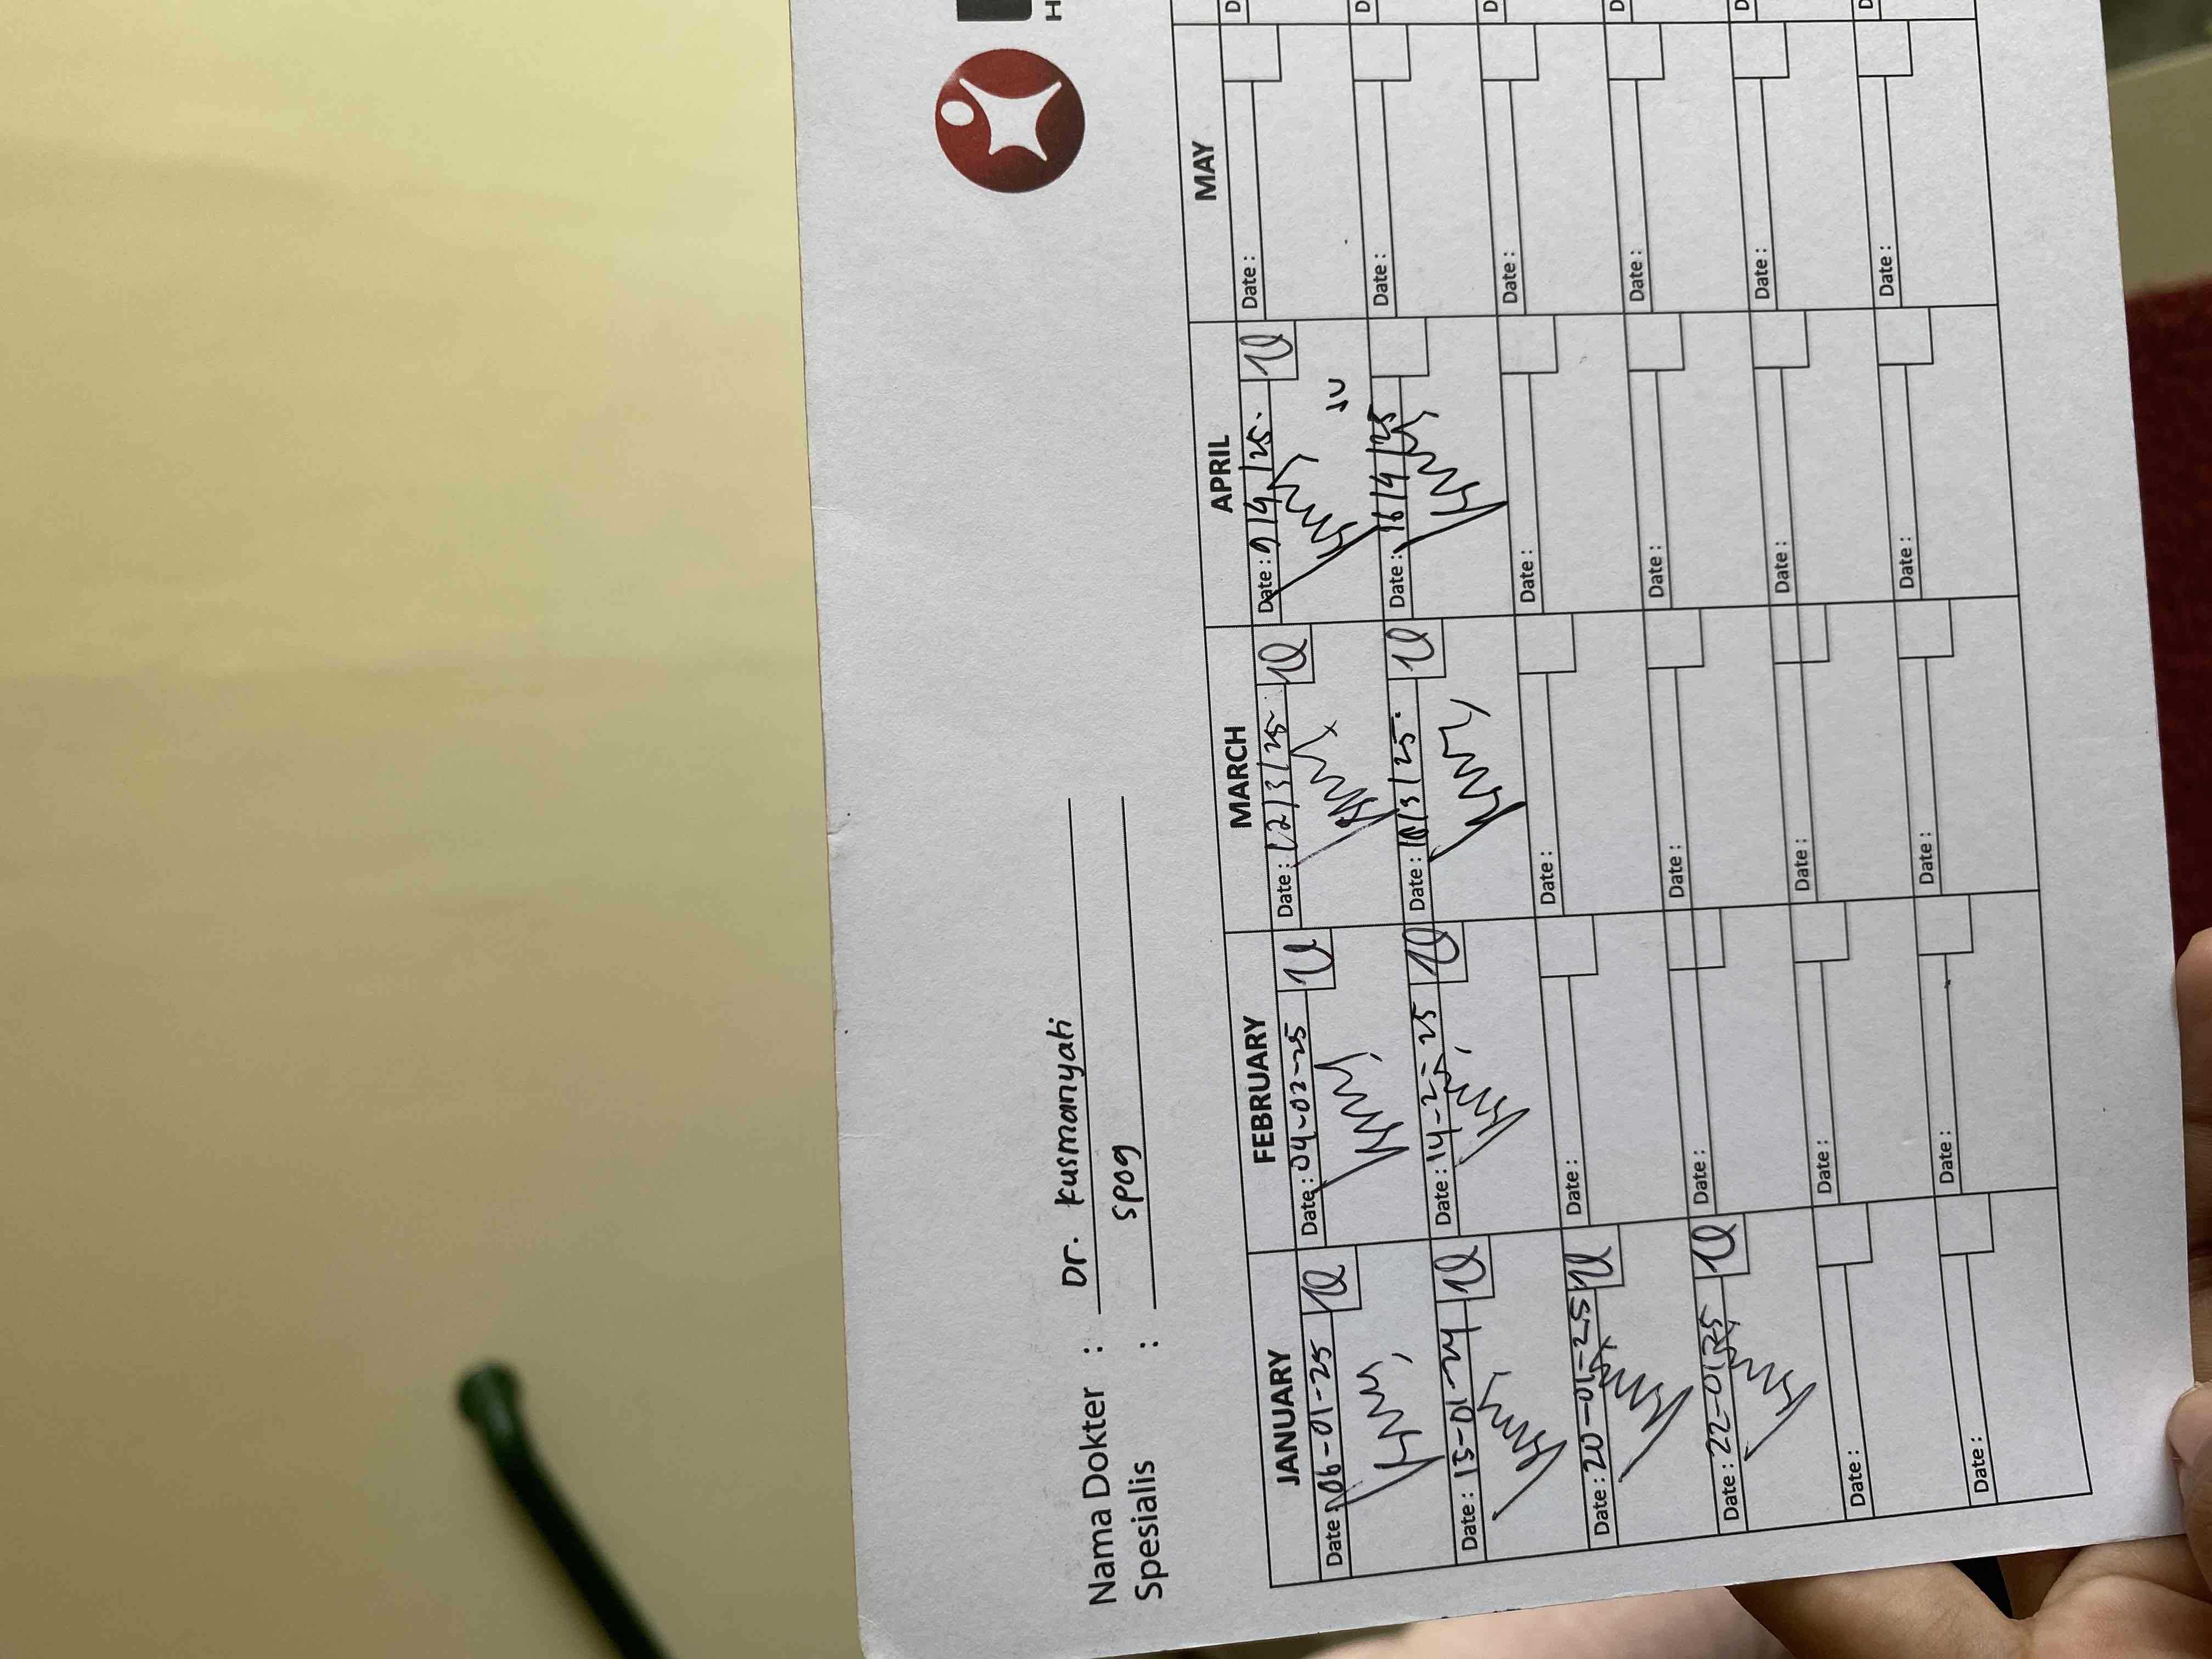 H
Nama Dokter : Dr. Kusmanyati
Spesialis : SPOG
JANUARY FEBRUARY MARCH APRIL MAY
Date : 06-01-25 Date : 04-02-25 Date : 12/3/25 Date : 9/4/25. Date : D
Date : 15-01-24 Date : 14-2-25 Date : /3/25. Date : 16/4/25 Date : D
Date : 20-01-25 Date : Date : Date : Date : D
Date : 22-01-25 Date : Date : Date : Date : D
Date : Date : Date : Date : Date : D
Date : Date : Date : Date : Date : D